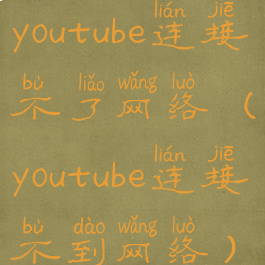 lián jiē
youtube连接
bù liǎo wǎng luò
不了网络（
lián jiē
youtube连接
bù dào wǎng luò
不到网络）